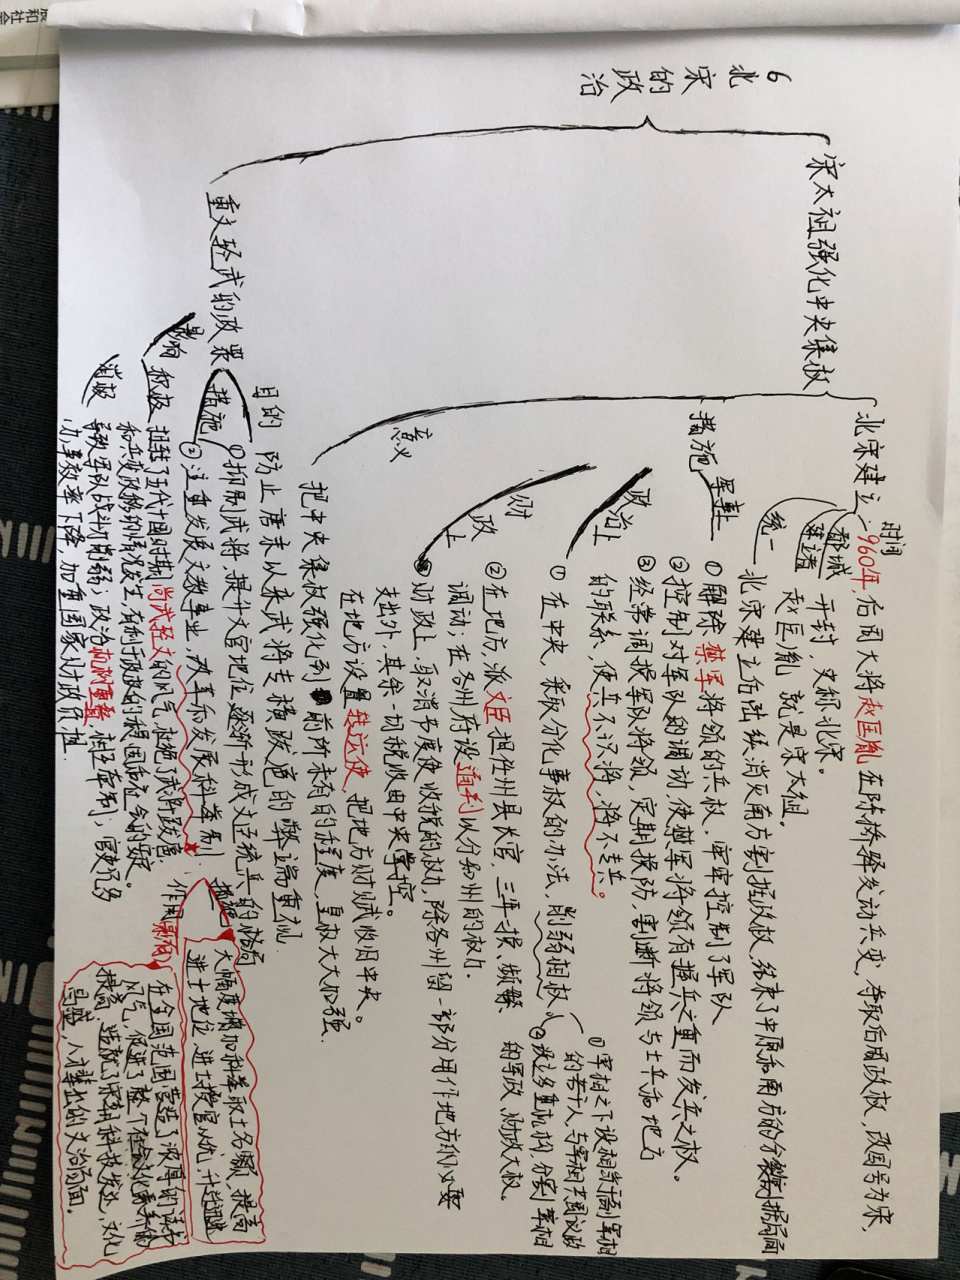 6 北宋的政治
宋太祖强化中央集权
北宋建立
时间 960年,后周大将赵匡胤在陈桥驿发动兵变,夺取后周政权,改国号为宋,
都城 开封,史称北宋。
建立者 赵匡胤,就是宋太祖.
统一 北宋建立后陆续消灭南方割据政权,结束了中原和南方的分裂割据局面
措施
军事上 ①解除禁军将领的兵权,牢牢控制了军队
②控制对军队的调动,使禁军将领有握兵之重而无发兵之权.
③经常调换军队将领,定期换防,割断将领与士兵和地方
的联系,使兵不识将,将不专兵。
政治上 ①在中央,采取分化事权的办法,削弱相权
①宰相之下设相当于副宰相
的若干人,与宰相共同议政
②设立多重机构分割宰相
的军政、财政大权.
②在地方,派文臣担任州县长官,三年一换、频繁
调动;在各州府设通判以分知州的权力.
财政上 ●财政上,取消节度使收税的权力,除各州留一部分用作地方的必要
支出外,其余一切税收由中央掌控。
在地方设置转运使,把地方财赋收归中央。
意义 把中央集权强化到前所未有的程度,皇权大大加强.
重文轻武的政策
目的 防止唐末以来武将专横跋扈的弊端重现.
措施 ①抑制武将,提升文官地位,逐渐形成文臣统兵的格局
②注重发展文教事业,改革和发展科举制.
措施 大幅度增加科举取士名额,提高
进士地位,进士授官从优,升迁迅速
作用 影响 在全国范围营造了浓厚的读书
风气,促进了整个社会文化素养的
提高,造就了宋朝科技发达,文化
昌盛,人才辈出的文治局面。
影响
积极 扭转了五代十国时期尚武轻文的风气,杜绝了武将跋扈
和兵变政移的情况发生,有利于政权的稳固和社会的安定。
消极 导致军队战斗力削弱;政治机构重叠,相互牵制;官吏冗多
办事效率下降,加重国家财政负担.